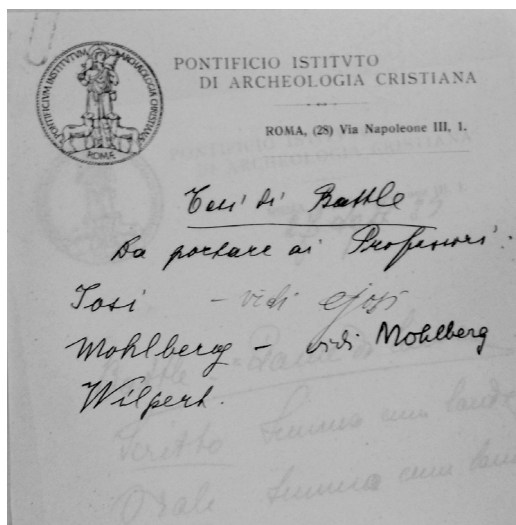 PONTIFICIVM INSTITVTVM ARCHAEOLOGIAE CHRISTIANAE
ROMAE
PONTIFICIO ISTITVTO
DI ARCHEOLOGIA CRISTIANA
ROMA, (28) Via Napoleone III, 1.
Tesi di Battle
Da portare ai Professori:
Josi – vidi EJosi
Mohlberg – vidi Mohlberg
Wilpert.
Scritto Summa cum laude
Orale Summa cum laude